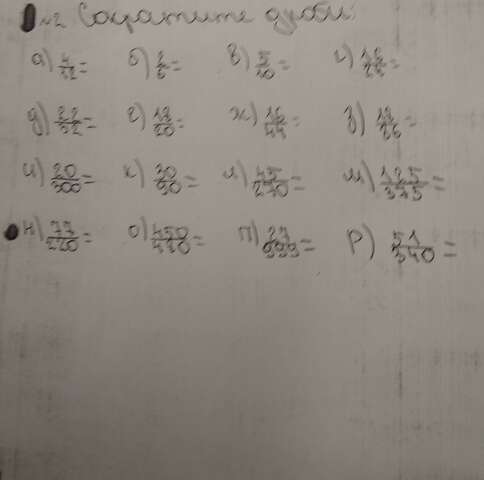 №2 Сократите дроби:
а) 4/32= б) 2/6= в) 5/10= г)
д) 22/32= е) 18/20= ж) 16/44= з) 13/26=
и) 20/300= к) 30/90= л) 45/270= м) 125/375=
н) 77/220= о) п) 27/999= р) 51/340=